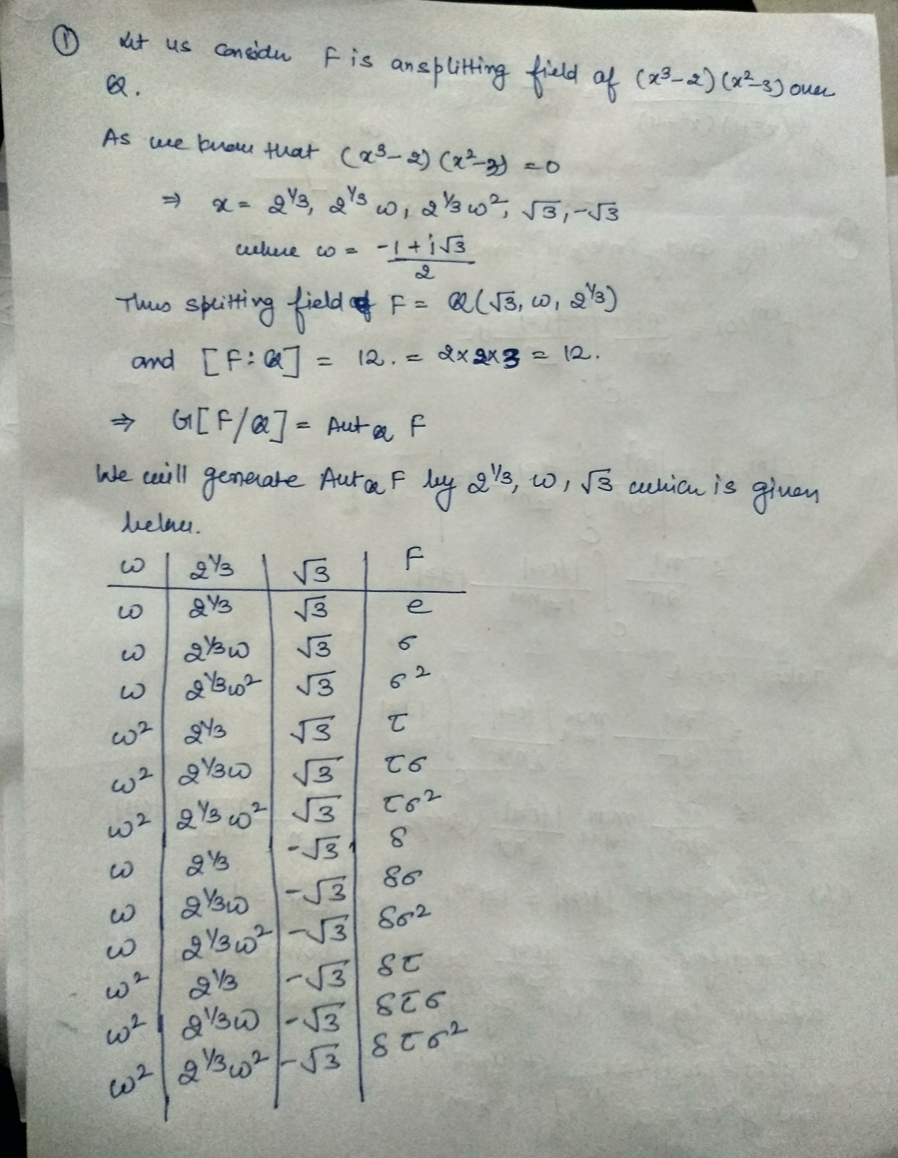 ① Let us consider F is an splitting field of (x³-2)(x²-3) over
Q.
As we know that (x³-2)(x²-3) = 0
⇒ x = 2^1/3, 2^1/3 ω, 2^1/3 ω², √3, -√3
where ω = (-1+i√3)/2
Thus splitting field of F = Q(√3, ω, 2^1/3)
and [F:Q] = 12. = 2×2×3 = 12.
⇒ G[F/Q] = Aut_Q F
We will generate Aut_Q F by 2^1/3, ω, √3 which is given
below.
ω | 2^1/3 | √3 | F
ω | 2^1/3 | √3 | e
ω | 2^1/3 ω | √3 | σ
ω | 2^1/3 ω² | √3 | σ²
ω² | 2^1/3 | √3 | τ
ω² | 2^1/3 ω | √3 | τσ
ω² | 2^1/3 ω² | √3 | τσ²
ω | 2^1/3 | -√3 | δ
ω | 2^1/3 ω | -√3 | δσ
ω | 2^1/3 ω² | -√3 | δσ²
ω² | 2^1/3 | -√3 | δτ
ω² | 2^1/3 ω | -√3 | δτσ
ω² | 2^1/3 ω² | -√3 | δτσ²